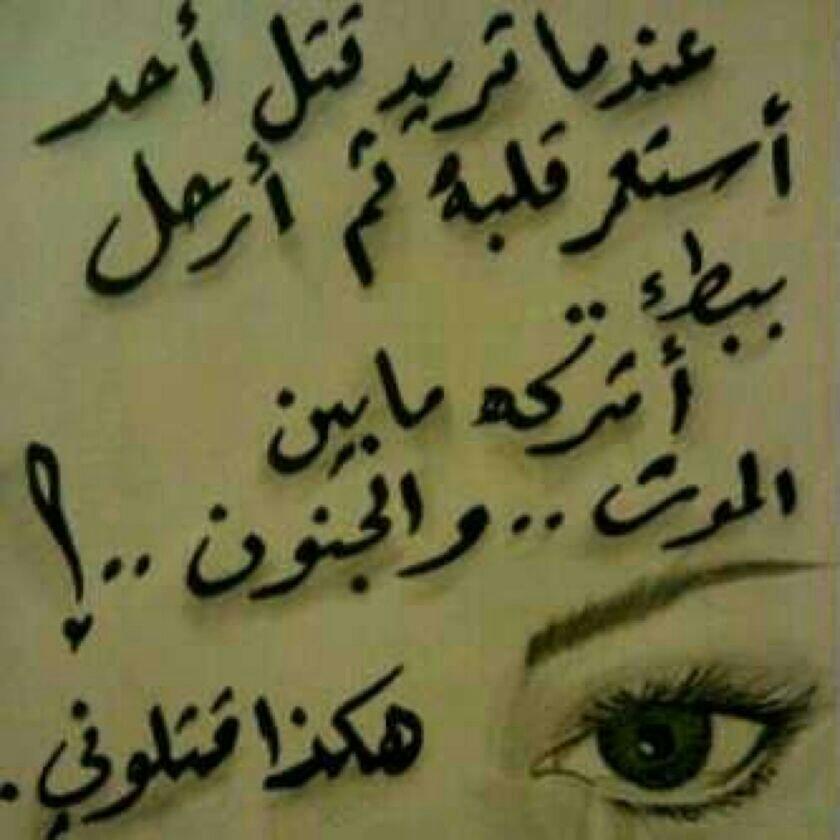 عندما تريد قتل أحد
أستعمر قلبهُ ثم أرحل
ببطء
أتركه مابين
الموت .. والجنون ..!
هكذا قتلوني .